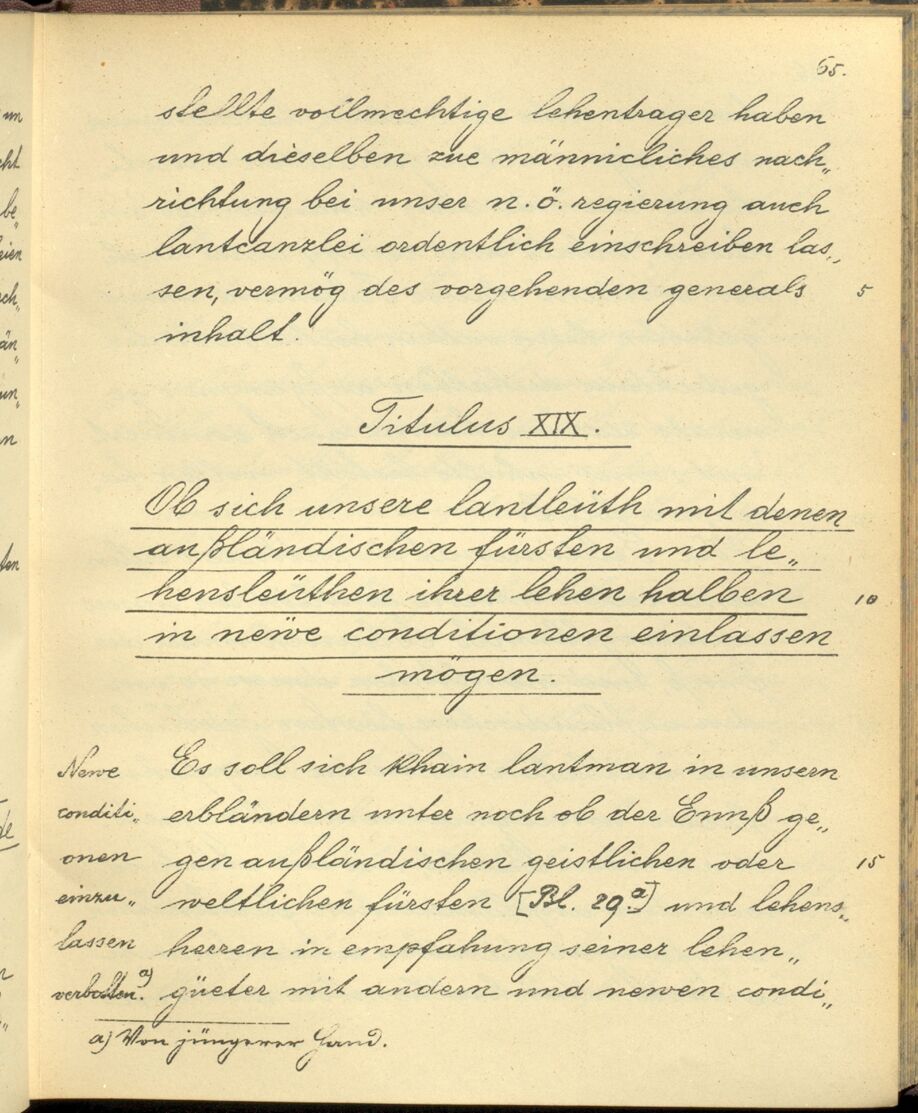 65.
stellte vollmechtige lehentrager haben
und dieselben zue männicliches nach„
richtung bei unser n. ö. regierung auch
lantcanzlei ordentlich einschreiben las„
sen, vermög des vorgehenden generals 5
inhalt
Titulus XIX.
Ob sich unsere lantleüth mit denen
außländischen fürsten und le„
hensleüthen ihrer lehen halben 10
in newe conditionen einlassen
mögen.
Newe
conditi„
onen
einzu„
lassen
verbotten. a)
Es soll sich khain lantman in unsern
erbländern unter noch ob der Ennß ge„
gen außländischen geistlichen oder 15
weltlichen fürsten [Bl. 29a] und lehens„
herren in empfahung seiner lehen„
güeter mit andern und newen condi„
a) Von jüngerer Hand.